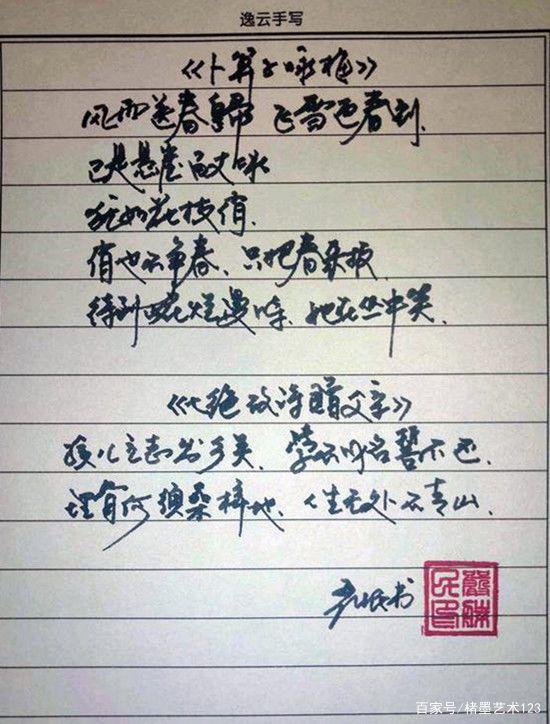 逸云手写
《卜算子咏梅》
风雨送春归 飞雪迎春到.
已是悬崖百丈冰
犹有花枝俏.
俏也不争春、只把春来报.
待到山花烂漫时、她在丛中笑.
《七绝改诗赠父亲》
孩儿立志出乡关、学不成名誓不还.
埋骨何须桑梓地、人生无处不青山.
书
百家号/楮墨艺术123